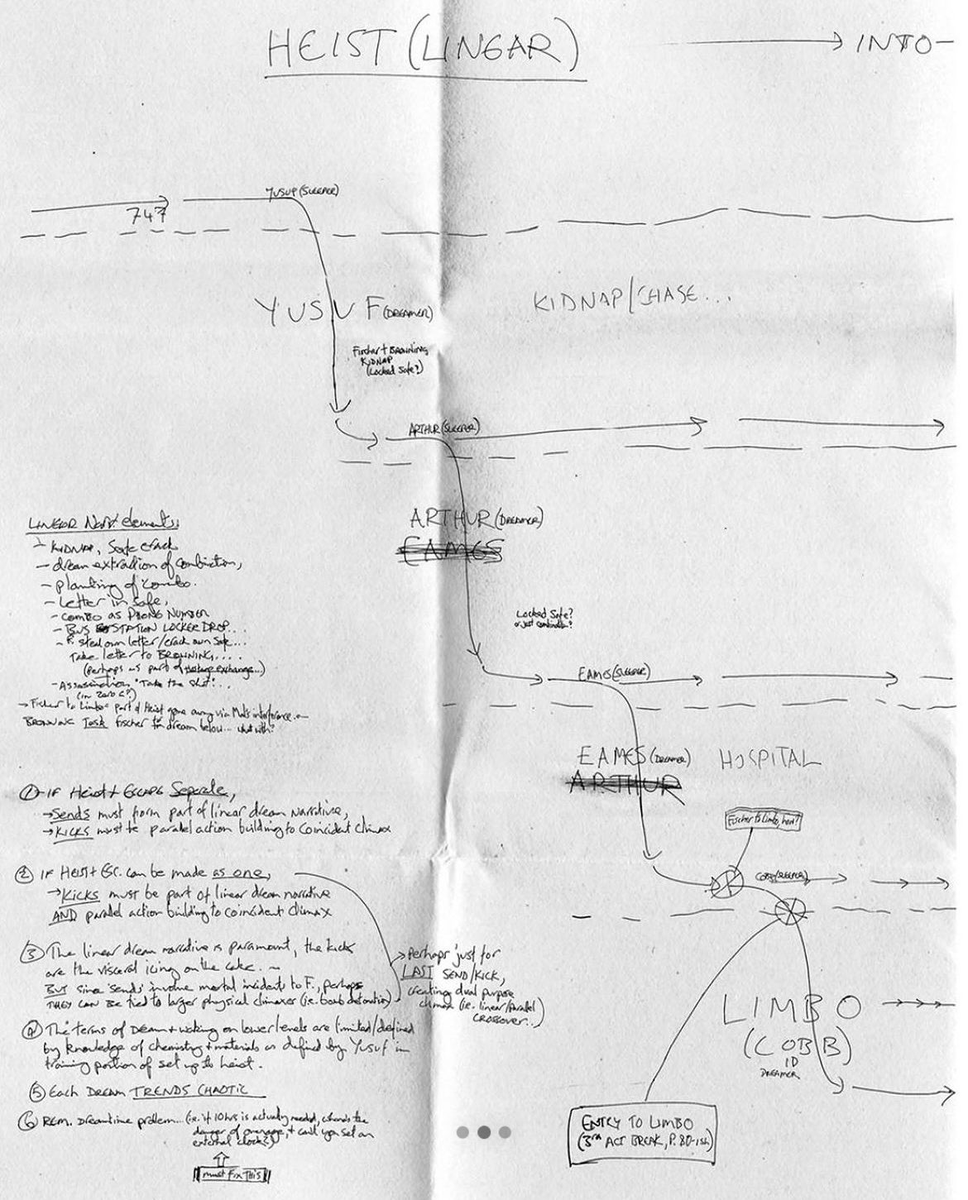 HEIST (LINEAR)
INTO-
747
YUSUF (SLEEPER)
YUSUF (DREAMER)
KIDNAP/CHASE...
Fischer + BROWNING
KIDNAP
(Locked Safe?)
ARTHUR (SLEEPER)
ARTHUR (DREAMER)
EAMES
LINEAR Narr. elements;
- KIDNAP, Safe crack
- dream extraction of combination,
- planting of combo.
- Letter in safe,
- COMBO AS PHONE NUMBER
- BUS STATION LOCKER DROP...
- F. steal own letter/crack own safe...
Take letter to BROWNING....
(Perhaps as part of hostage exchange...)
- Assassination, "Take the shot"...
(in Zero G?)
→ Fischer to Limbo = part of Heist gone awry via Mal's interference.
BROWNING Task Fischer to dream below... what with?
Locked Safe?
or just combination?
EAMES (SLEEPER)
EAMES (DREAMER)
ARTHUR
HOSPITAL
① - IF Heist + Escape Separate,
→ Sends must form part of linear dream narrative,
→ KICKS must be parallel action building to Coincident Climax
② IF HEIST + ESC. can be made as one,
→ KICKS must be part of linear dream narrative
AND parallel action building to coincident climax
③ The linear dream narrative is paramount, the kicks
are the visceral icing on the cake.
BUT since 'sends' involve mortal incidents to F., perhaps
THEY CAN BE tied to larger physical climaxes (i.e. bomb detonation)
→ Perhaps just for
LAST SEND/KICK,
creating dual purpose
climax (i.e. linear/parallel
CROSSOVER...)
④ The terms of Dream + waking on lower levels are limited/defined
by knowledge of chemistry + materials as defined by Yusuf in
training portion of set up to heist.
⑤ Each Dream TRENDS CHAOTIC
⑥ REM. Dreamtime problem... (i.e. if 10 hrs is actually needed, where's the
danger of overage, + can't you set an
external clock?)
must fix THIS
Fischer to Limbo, here?
COBB (SLEEPER)
LIMBO
(COBB)
ID
DREAMER
ENTRY TO LIMBO
(3rd ACT BREAK, P. 80-ish)